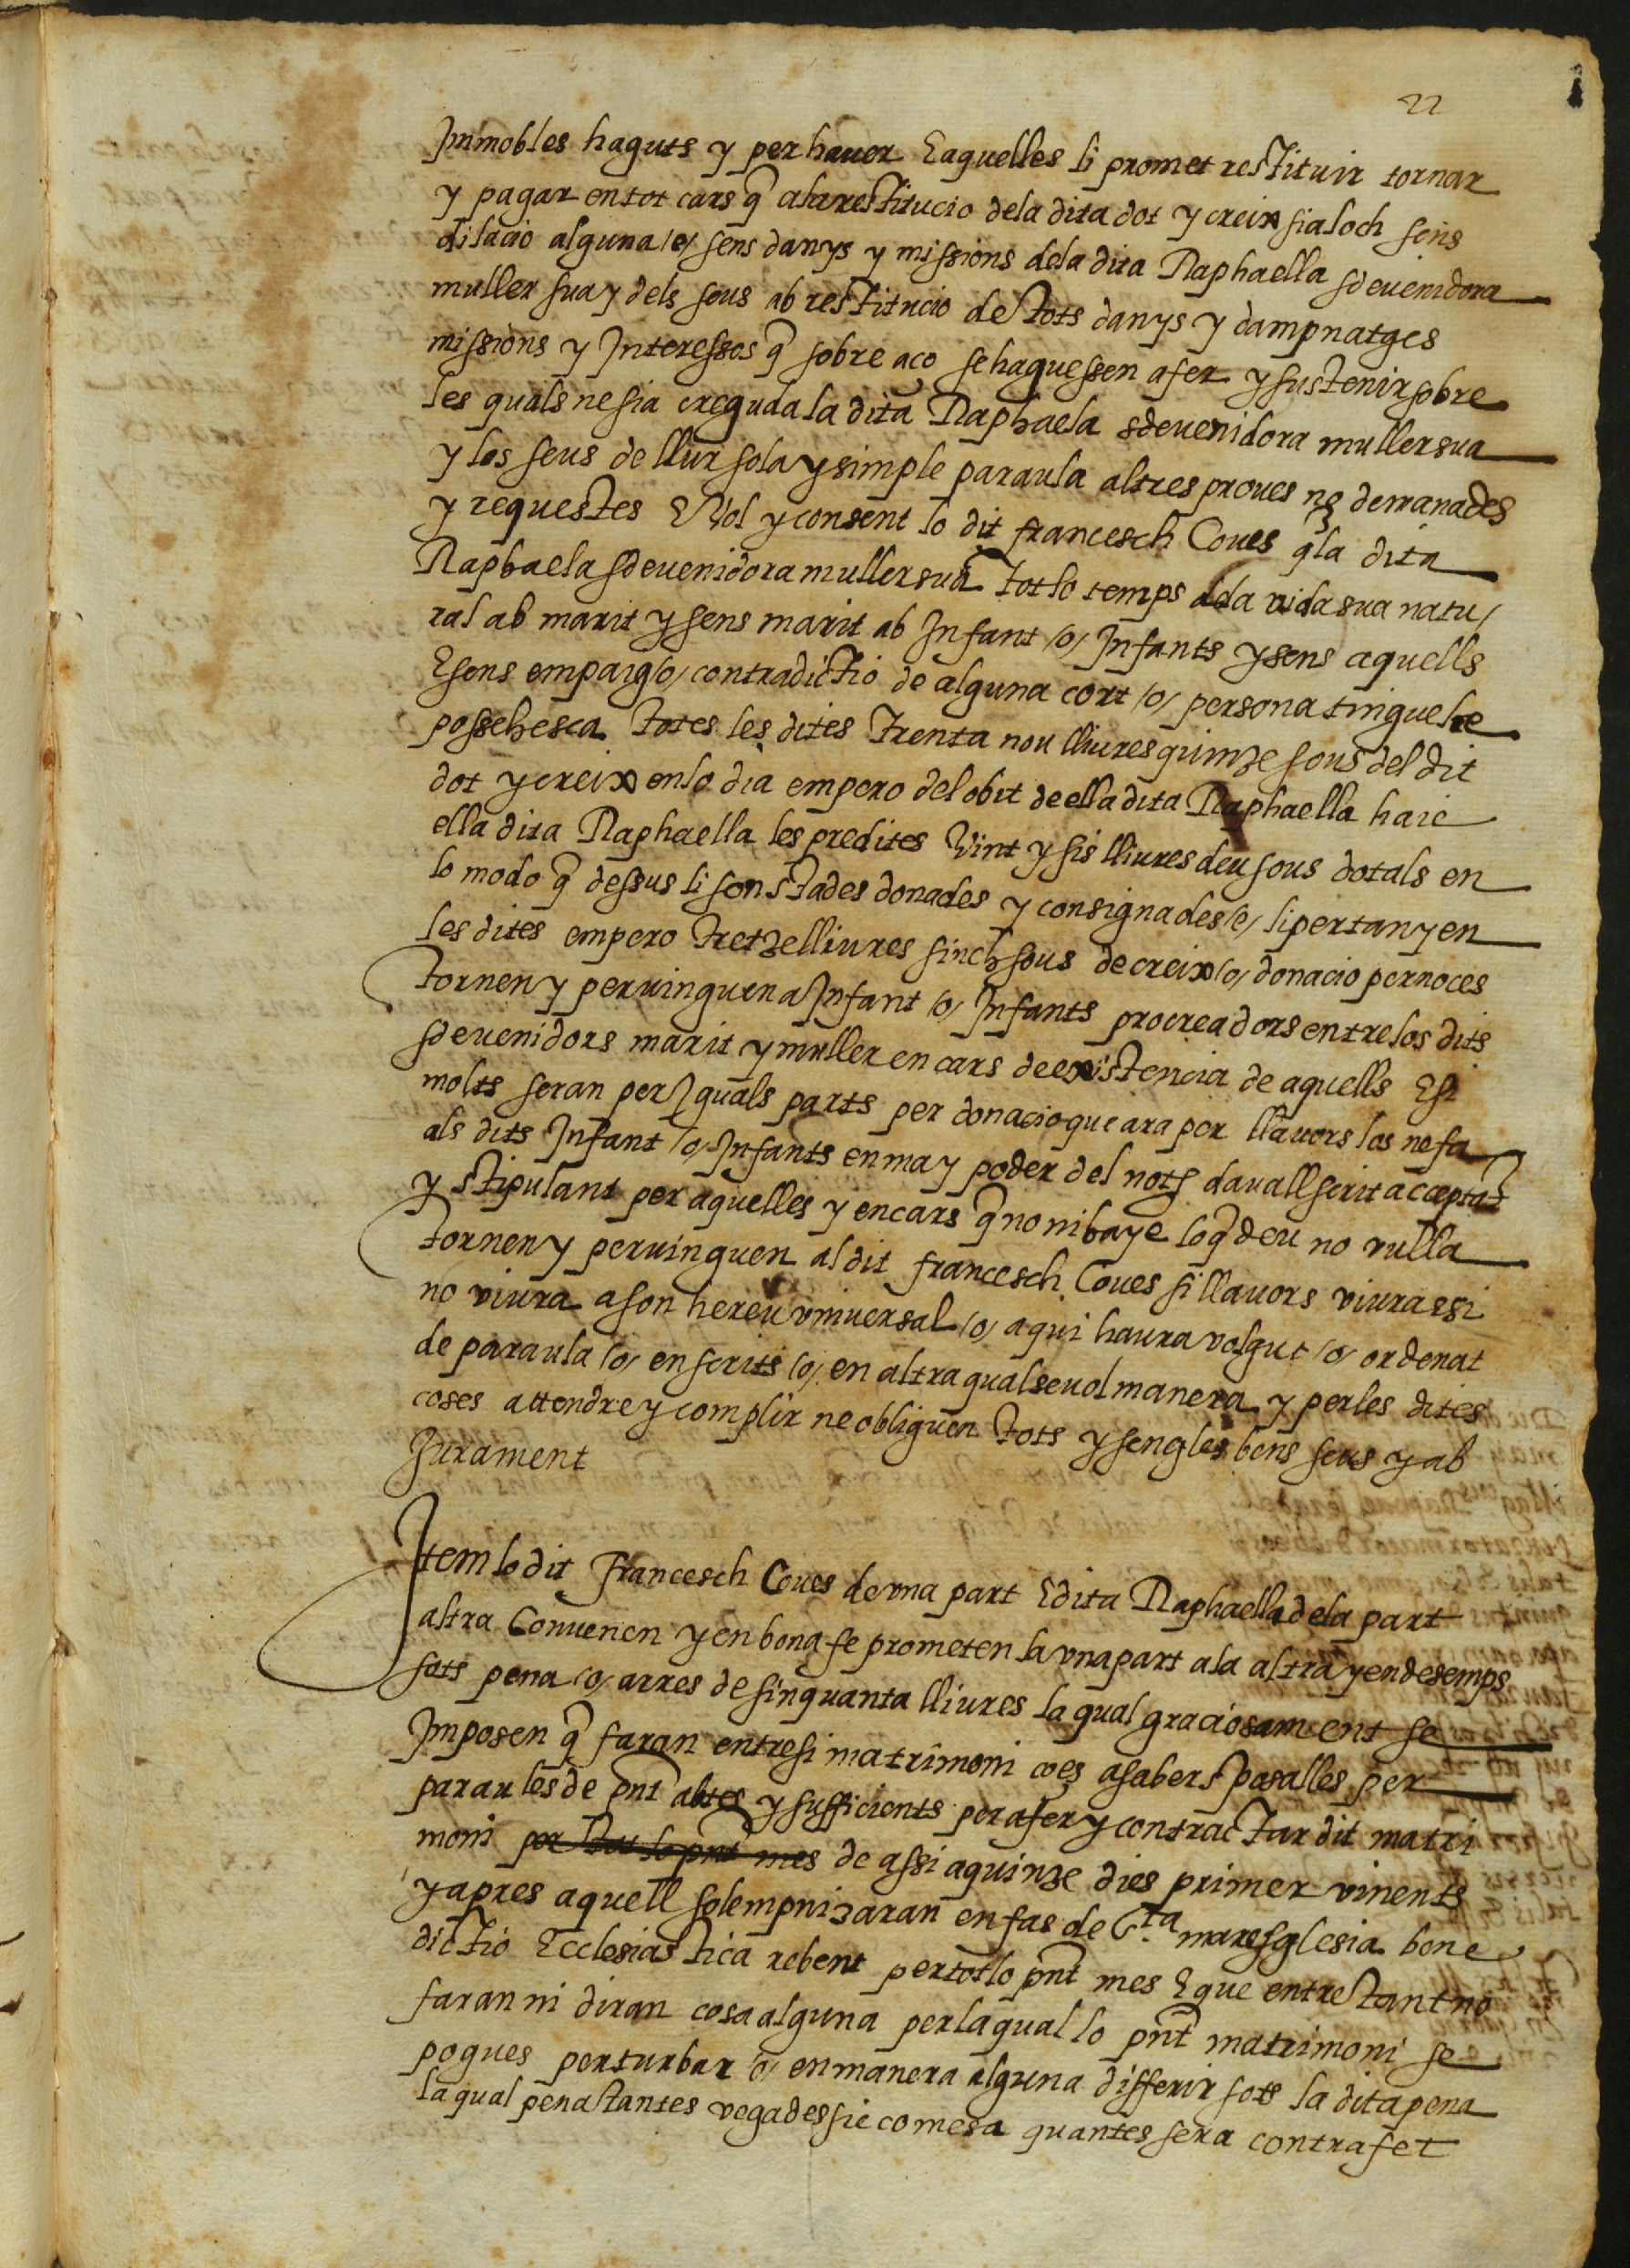 22
Immobles haguts y per hauer E aquelles li promet restituir tornar
y pagar en tot cars q̃ ala restitucio dela dita dot y creix sia loch sens
dilacio alguna /o/ sens danys y missions dela dita Raphaella sdeuenidora
muller sua y dels seus ab restitucio de tots danys y dampnatges
missions y Interessos q̃ sobre aço se haguessen a fer y sustenir sobre
les quals ne sia creguda la dita Raphaela sdeuenidora muller sua
y los seus de llur sola y simple paraula altres proues no demanades
y requestes E Vol y consent lo dit francesch Coues q̃ la dita
Raphaela sdeuenidora muller sua tot lo temps dela vida sua natu/
ral ab marit y sens marit ab Infant /o/ Infants y sens aquells
E sens empaig /o/ contradictio de alguna cort /o/ persona tingue he
possehesca totes les dites trenta nou lliures quinze sous del dit
dot y creix en lo dia empero del obit de ella dita Raphaella haie
ella dita Raphaella les predites Vint y sis lliures deu sous dotals en
lo modo q̃ dessus li son stades donades y consignades /o/ li pertanyen
les dites empero tretze lliures sinch sous de creix /o/ donacio per noces
tornen y peruinguen a Infant /o/ Infants procreadors entre los dits
sdeuenidors marit y muller en cars de existencia de aquells E si
molts seran per Iguals parts per donacio que ara per llauors los ne fa
als dits Infant /o/ Infants en ma y poder del not̃ dauall scrit acceptat
y stipulant per aquelles y en cars q̃ no ni haye lo q̃ deu no vulla
tornen y peruinguen al dit francesch Coues si llauors viura e si
no viura a son hereu vniuersal /o/ a qui haura volgut /o/ ordenat
de paraula /o/ en scrits /o/ en altra qualseuol manera y per les dites
coses attendre y complir ne obliguen tots y sengles bens seus y ab
Jurament
Item lo dit Francesch Coues de vna part E dita Raphaella dela part
altra Conuenen y en bona fe prometen la vna part ala altra y en desemps
sots pena /o/ arres de sinquanta lliures la qual graciosament se
Imposen q̃ faran entre si matrimoni ço es a saber sposalles per
paraules de pnt̃ abtes y sufficients per a fer y contractar dit matri
moni per tot lo pnt̃ mes de assi a quinze dies primer vinents
y apres aquell solempnizaran en fas de Sta mare sglesia bene
dictio Ecclesiastica rebent per tot lo pnt̃ mes E que entretant no
faran ni diran cosa alguna per la qual lo pnt̃ matrimoni se
pogues perturbar /o/ en manera alguna differir sots la dita pena
la qual pena tantes vegades sie comesa quantes sera contrafet